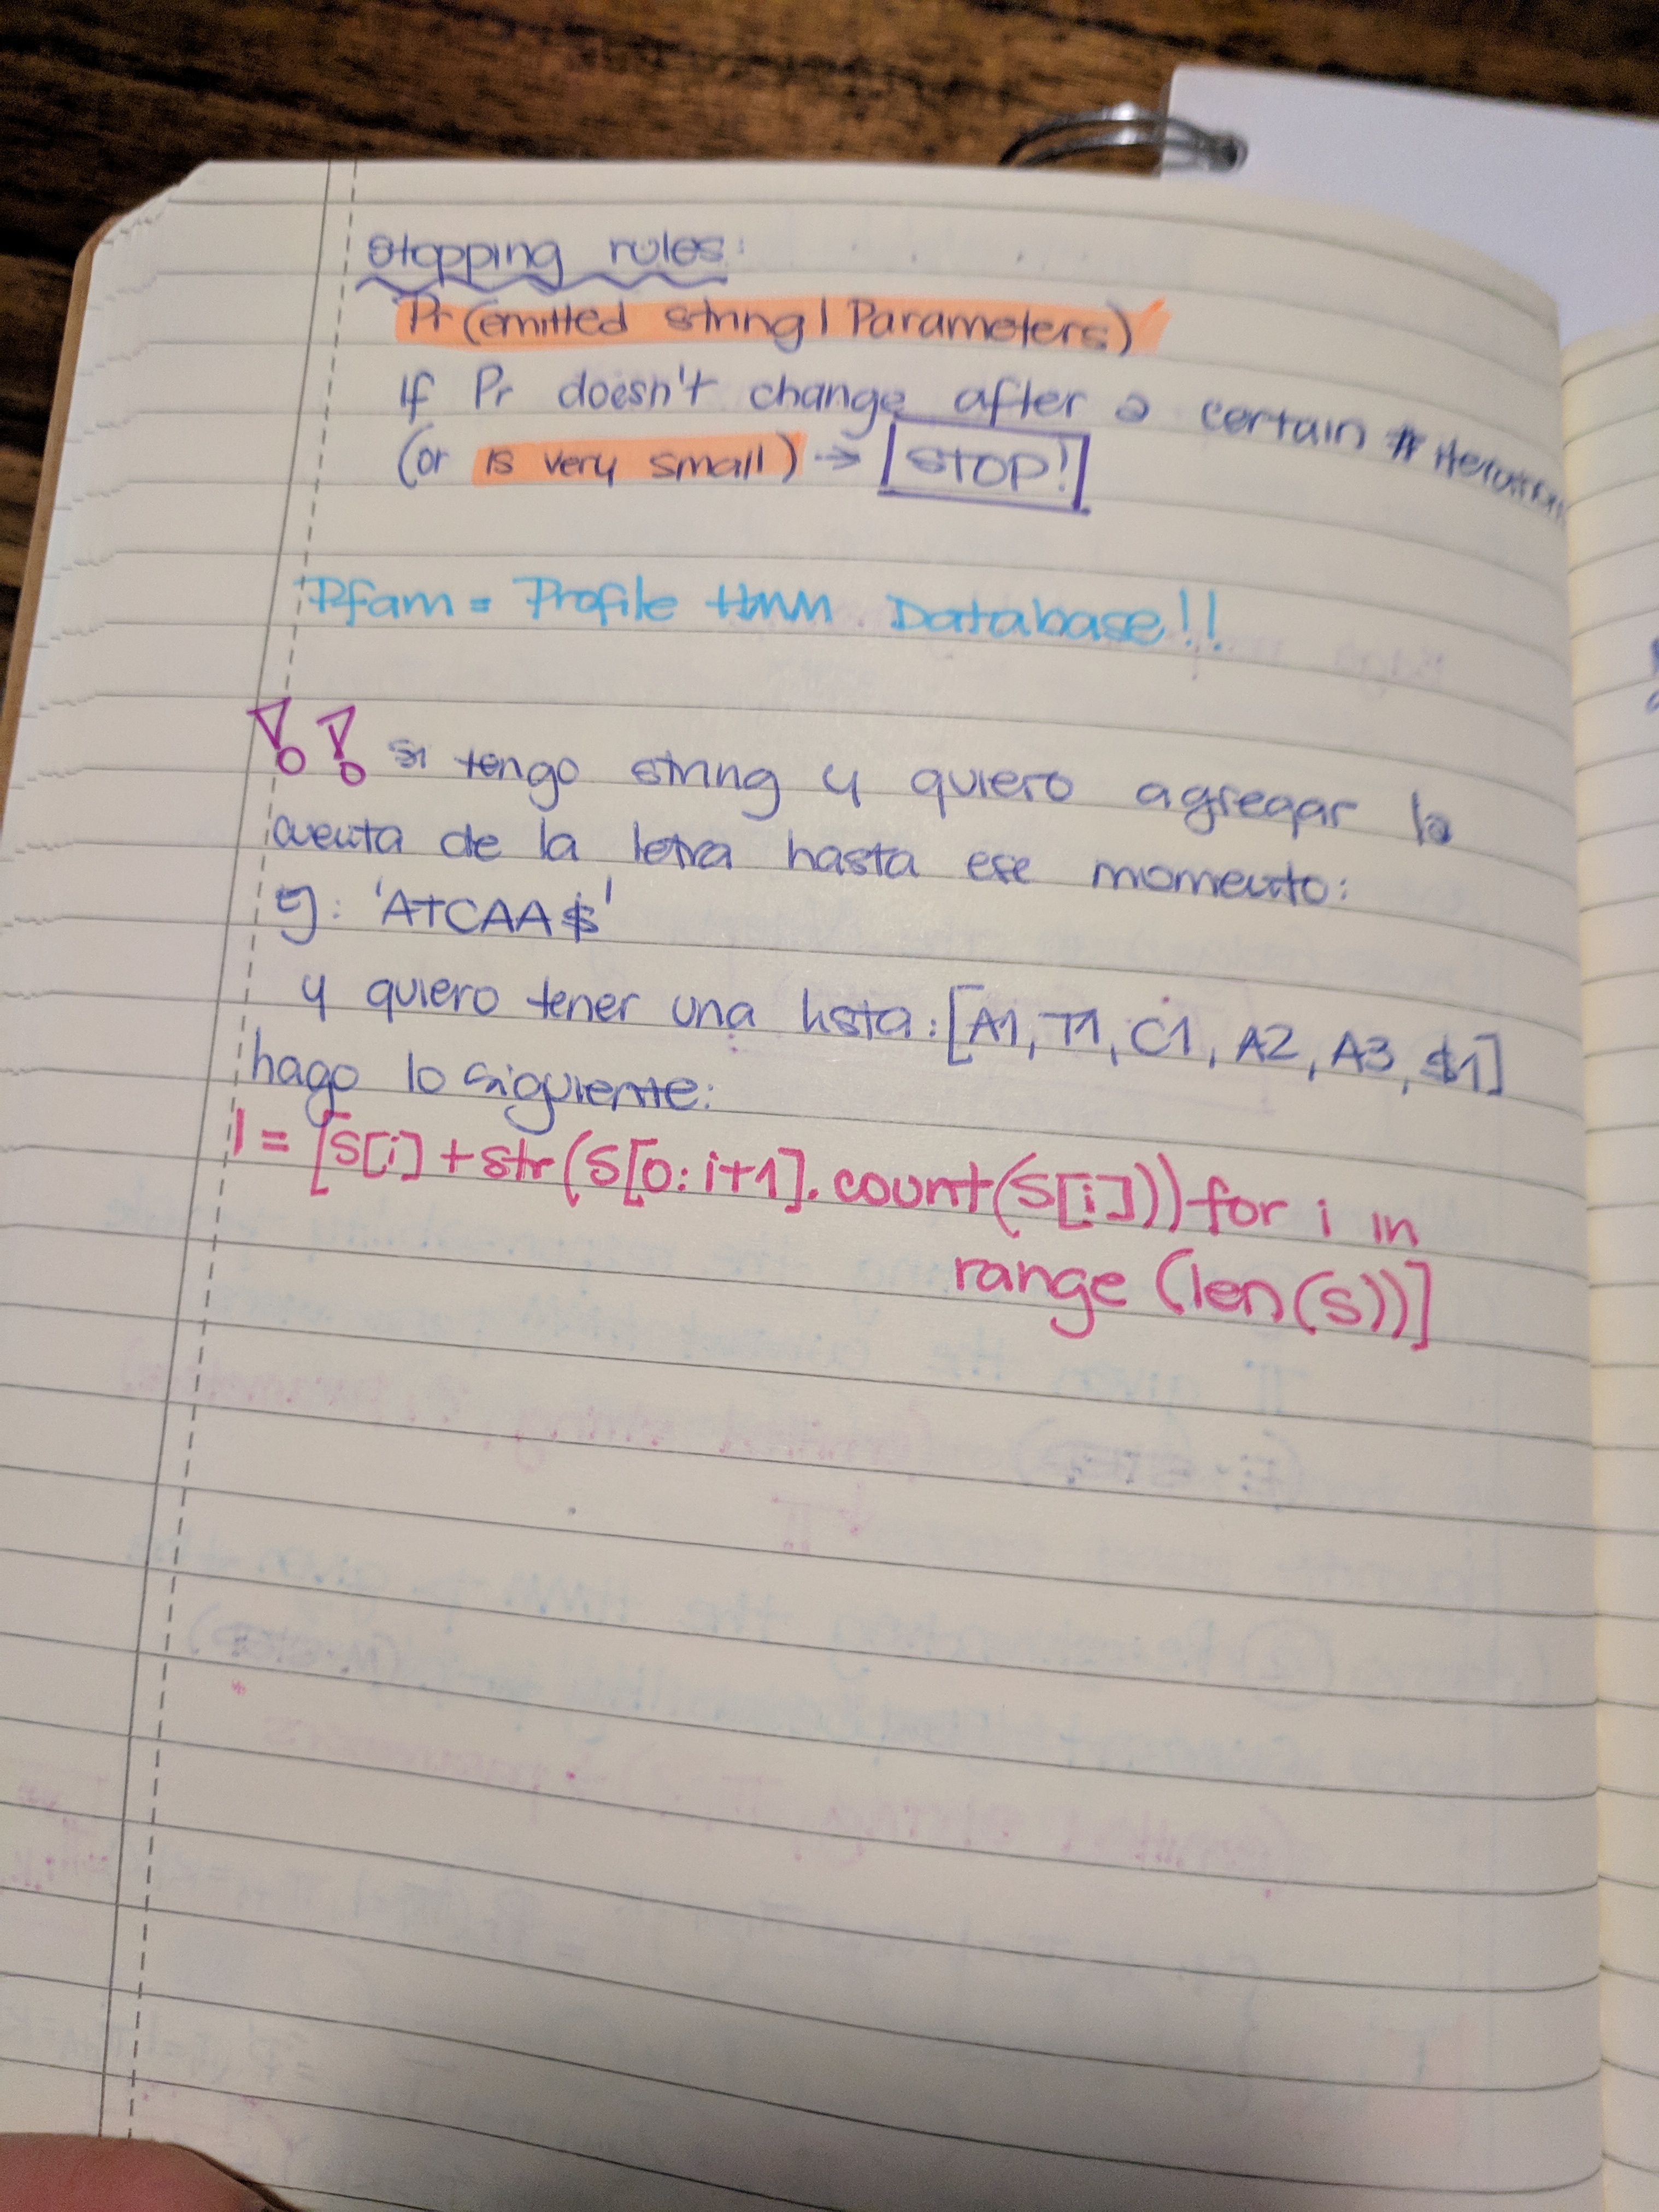 Stopping rules:
Pr(emitted string | Parameters)
If Pr doesn't change after a certain # iterations
(or is very small) → STOP!
Pfam = Profile HMM Database!!
!! si tengo string y quiero agregar la
cuenta de la letra hasta ese momento:
eg: 'ATCAA$'
y quiero tener una lista: [A1, T1, C1, A2, A3, $1]
hago lo siguiente:
l = [s[i] + str(s[0:i+1].count(s[i])) for i in
range (len(s))]